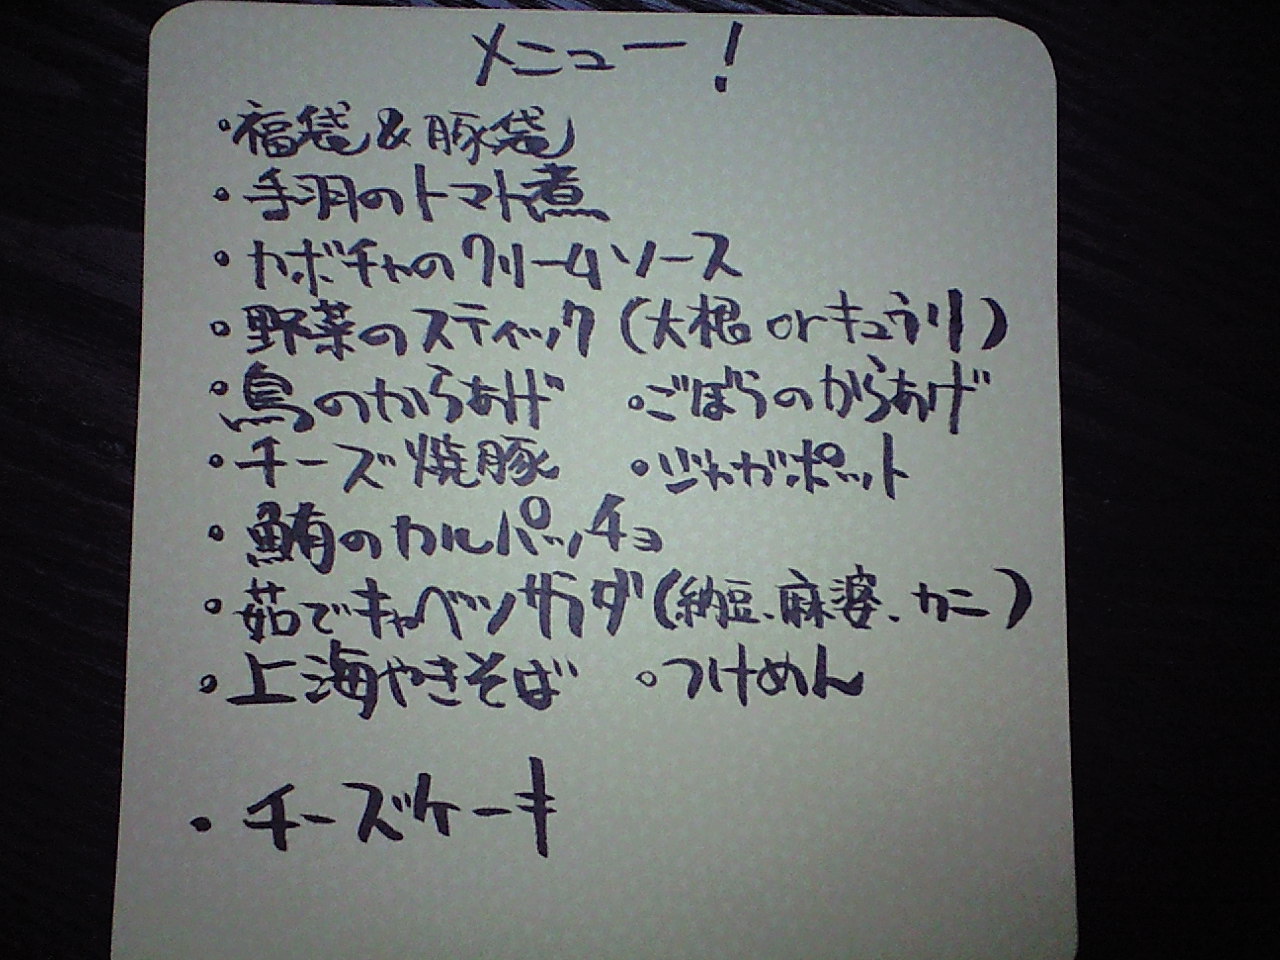 メニュー!
・福袋&豚袋
・手羽のトマト煮
・カボチャのクリームソース
・野菜のスティック(大根orキュウリ)
・鳥のからあげ ・ごぼうのからあげ
・チーズ焼豚 ・ジャガポット
・鮪のカルパッチョ
・茹でキャベツサラダ(納豆、麻婆、カニ)
・上海やきそば ・つけめん
・チーズケーキ